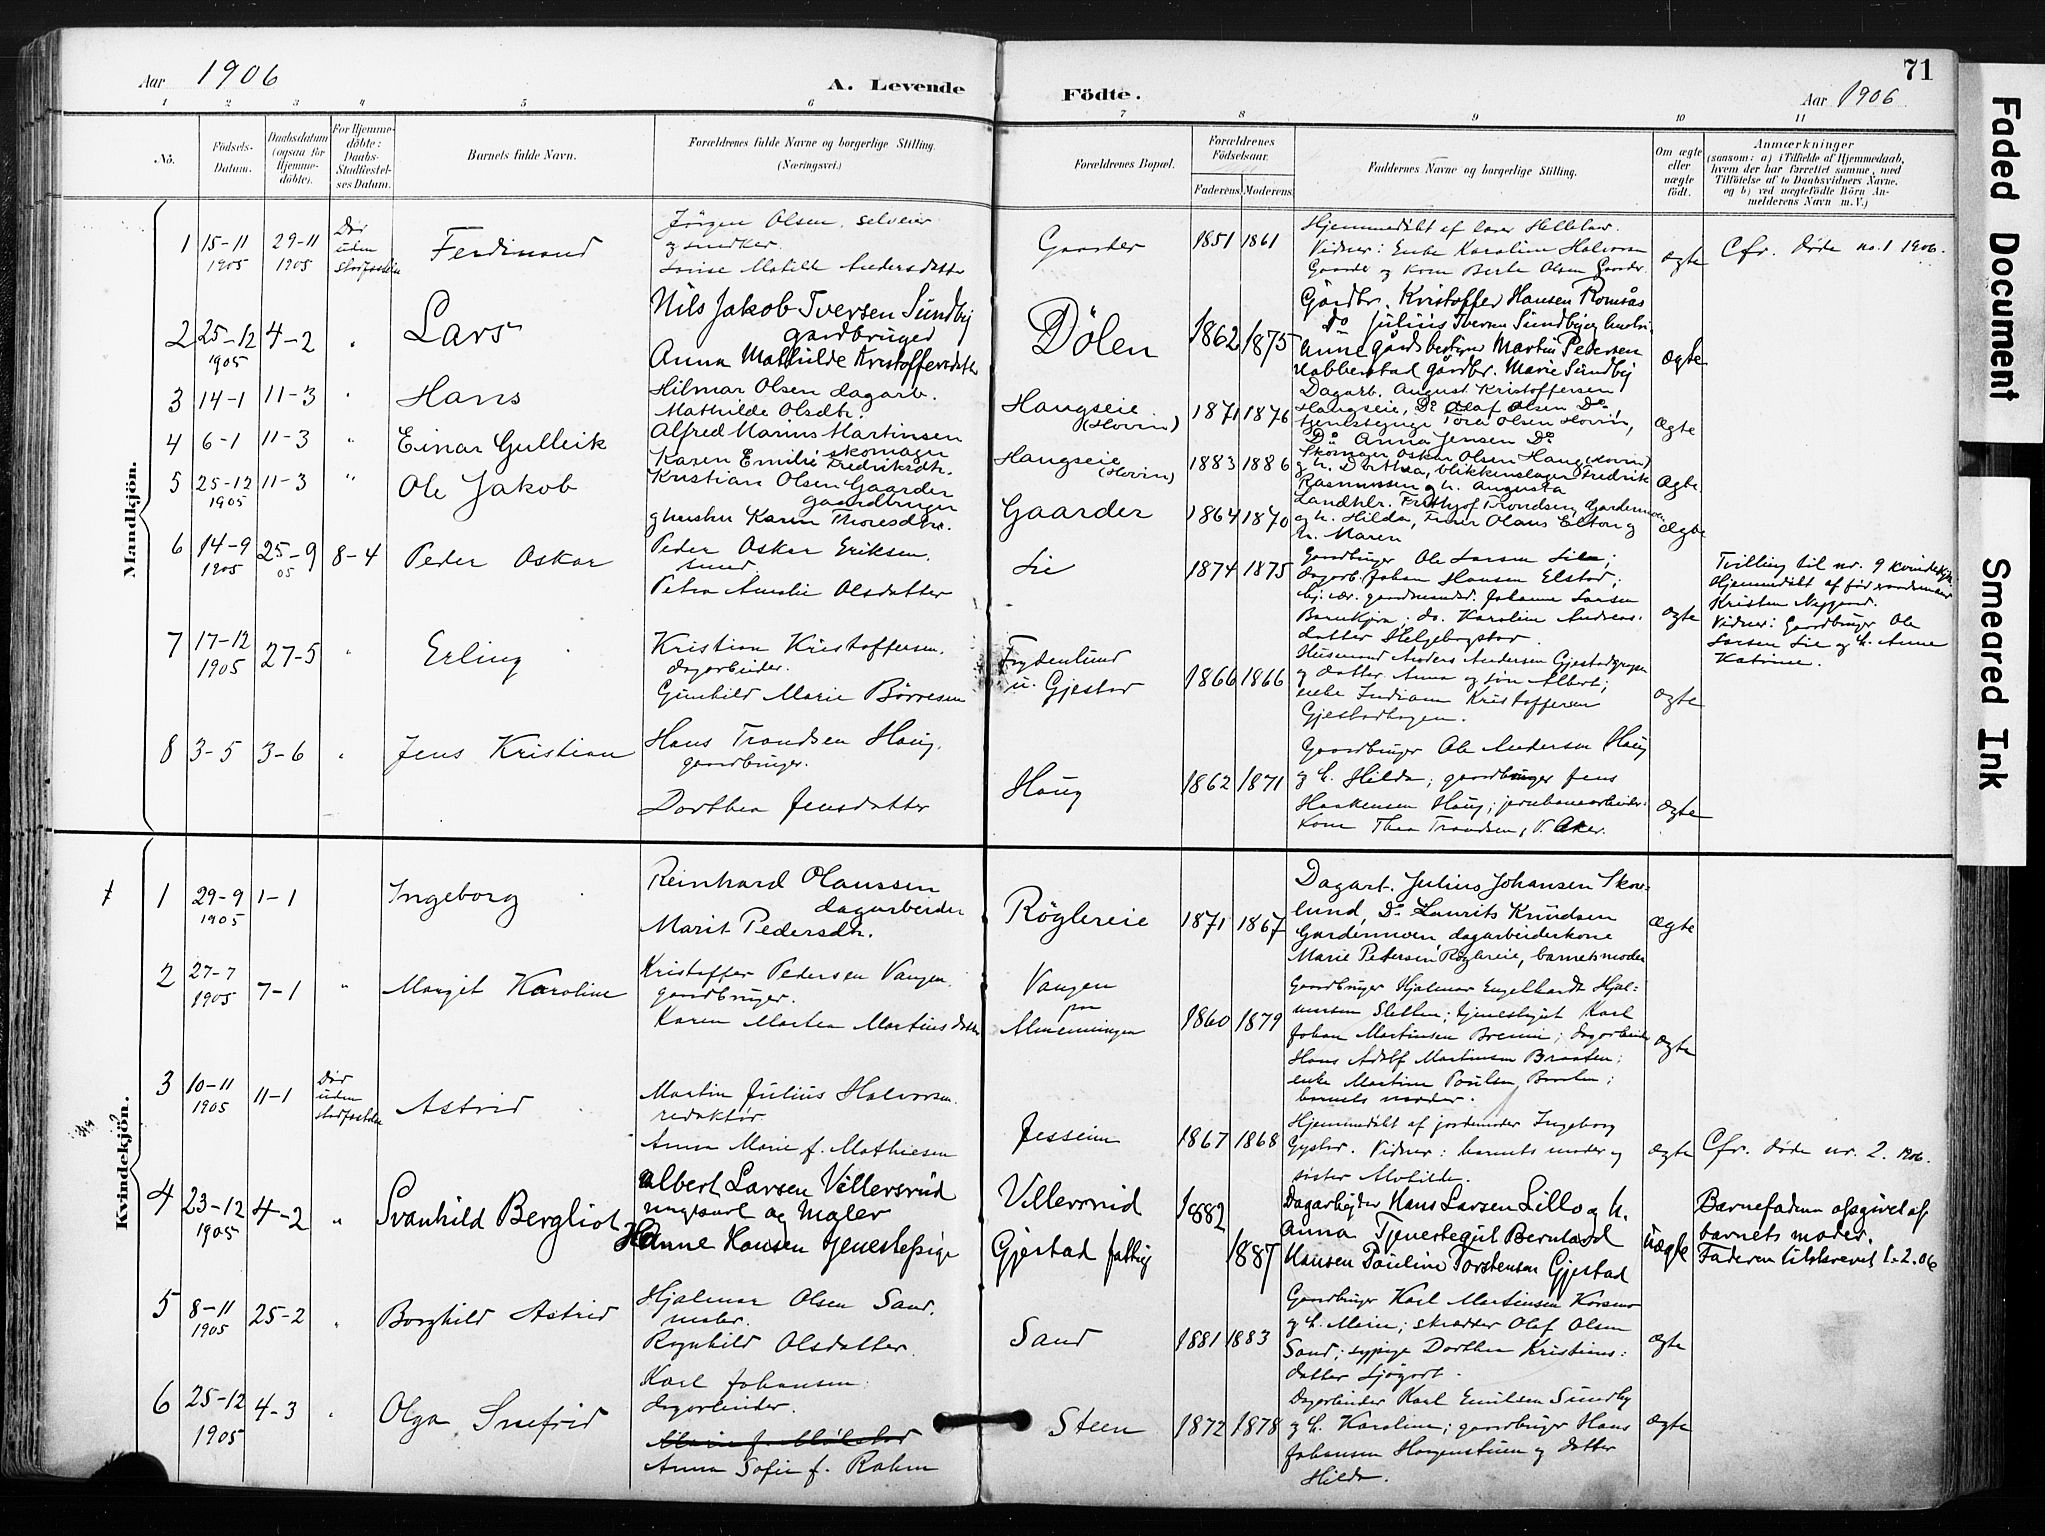 Aar 1906
A. Levende
Födte.
Aar 1906
71
Faded Document
Smeared Ink
1 2 3 4 5 6 7 8 9 10 11
No.
Födsels-Datum.
Daabsdatum (ogsaa for Hjemmedöbte).
For Hjemmedöbte: Daabs-Stadfestelses Datum.
Barnets fulde Navn.
Forældrenes fulde Navne og borgerlige Stilling.
(Næringsvei.)
Forældrenes Bopæl.
Forældrenes Födselsaar.
Faderens Moderens
Faddernes Navne og borgerlige Stilling.
Om ægte eller uægte födt.
Anmærkninger
(saasom: a) i Tilfælde af Hjemmedaab, hvem der har forrettet samme, med Tilföielse af to Daabsvidners Navne, og b) ved uægtefödte Börn Anmelderens Navn m. V.)
Mandkjön.
1 15-11 1905 29-11 1905 Död uden
Ferdinand
Jörgen Olsen, selveier
og snedker.
Lovise Matilde Andersdatter
Gaarder 1851 1861
Hjemmedöbt af lærer
Vidner: Enke Karoline Halvorsen
Gaarder og Kone Berte Olsen Gaarder
ægte
Cfr. döde no. 1 1906.
2 25-12 1905 4-2 "
Lars
Nils Jakob Iversen Sundby
gardbruger
Anna Mathilde Kristoffersdatter
Dölen 1862 1875
Gårdbr. Kristoffer Hansen Romsås
Do Julius Iversen Sundby og hustru
Anne gårdsbestyrer Martin Pedersen
Nabberstad gårdbr. Marie Sundby
ægte
3 14-1 11-3 "
Hans
Hilmar Olsen dagarb.
Mathilde Olsdtr.
Haugseie (Hovin) 1871 1876
Dagarb. August Kristoffersen
Haugseie, Do Olaf Olsen Do,
tjenstepige Tora Olsen Hovin,
Do Anna Jensen Do
Ægte
4 6-1 11-3 "
Einar Gulleik
Alfred Marius Martinsen
skomager
Karen Emilie Fredriksdtr.
Haugseie (Hovin) 1883 1886
Skomager Oskar Olsen Haug (Hovin)
og h. Dorthea, blikkenslager Fredrik
Rasmussen og h. Augusta
Ægte.
5 25-12 1905 11-3 "
Ole Jakob
Kristian Olsen Gaarder
Gaardbruger
og hustru Karen Thoresdtr.
Gaarder 1864 1870
Landhdlr. Frithjof Trondsen, Gardermoen
og h. Hilda, Olaus Elton og
h. Maren
Ægte
6 14-9 1905 25-9 05 8-4
Peder Oskar
Peder Oskar Eriksen.
smed
Petra Amalie Olsdatter
Lie 1874 1875
Gaardbruger Ole Larsen Lie;
dagarb. Johan Hansen Elstad;
Johanne Larsen
do. Karoline Andreasdatter
Helgebostad.
ægte
Tvilling til nr. 9 kvindekjön.
Hjemmedöbt af
Kristen Nygaard.
Vidner: Gaardbruger Ole
Larsen Lie og h. Anne
Katrine.
7 17-12 1905 27-5 "
Erling
Kristian Kristoffersen.
dagarbeider.
Gunhild Marie Börresen
Frydenlund
u. Gjestad 1866 1866
Husmand Anders Andersen
og datter Anna og sön Albert;
enke Indiane Kristoffersen
Gjestadhagen.
ægte
8 3-5 3-6 "
Jens Kristian
Hans Trondsen Haug.
gaardbruger.
Dorthea Jensdatter
Haug 1862 1871
Gaardbruger Ole Andersen Haug
og h. Hilda; gaardbruger Jens
Haakensen Haug; jernbanearbeider-
kone Thea Trondsen, V. Aker.
ægte
Kvindekjön.
1 29-9 1905 1-1
Ingeborg
Reinhard Olaussen
dagarbeider
Marit Pedersdtr.
Röglereie 1871 1867
Dagarb. Julius Johansen Skov-
lund, Do Laurits Knudsen
Gardermoen, dagarbeiderkone
Marie Petersen Röglereie, barnets moder
Ægte
2 27-7 1905 7-1 "
Margit Karoline
Kristoffer Pedersen Vangen.
gaardbruger.
Karen Martea Martinsdatter
Vangen
paa
Almenningen 1860 1879
Gaardbruger Hjalmar Engelhardt Hjal-
marsen Sletten; tjenestegut Karl
Johan Martinsen Brenni; dagarbeider
Hans Adolf Martinsen Braaten;
enke Martine Poulsen Braaten;
barnets moder.
ægte
3 10-11 1905 11-1 Död uden
Astrid
Martin Julius Halvorsen.
redaktör
Anna Marie f. Mathiesen
Jessheim 1867 1868
Hjemmedöbt af jordemoder Ingeborg
Vidner: barnets moder og
söster Matilde.
ægte
Cfr. döde nr. 2. 1906.
4 23-12 1905 4-2 "
Svanhild Bergliot
Albert Larsen Villersrud
ungkarl og Maler
Hanne Hansen tjenestepige
Villersrud 1882
Gjestad fattig 1887
Dagarbejder Hans Larsen Lillo og h.
Anna Tjenestegut Bernhard
Hansen Pauline Torstensen Gjestad
uægte
Barnefaderen opgivet af
barnets moder.
Faderen tilskrevet 1-2.06
5 8-11 1905 25-2 "
Borghild Astrid
Hjalmar Olsen Sand.
maler.
Ragnhild Olsdatter.
Sand 1881 1883
Gaardbruger Karl Martinsen Korsmo
og h. Marie; skrædder Olaf Olsen
Sand; sypige Dorthea Kristians-
datter
ægte
6 25-12 1905 4-3 "
Olga Snefrid
Karl Johansen.
dagarbeider.
Anna Sofie f. Rahm
Steen 1872 1878
Dagarbeider Karl Emilsen Sundby
og h. Karoline; gaardbruger Hans
Johansen Haugenstuen og datter
Hilda.
ægte